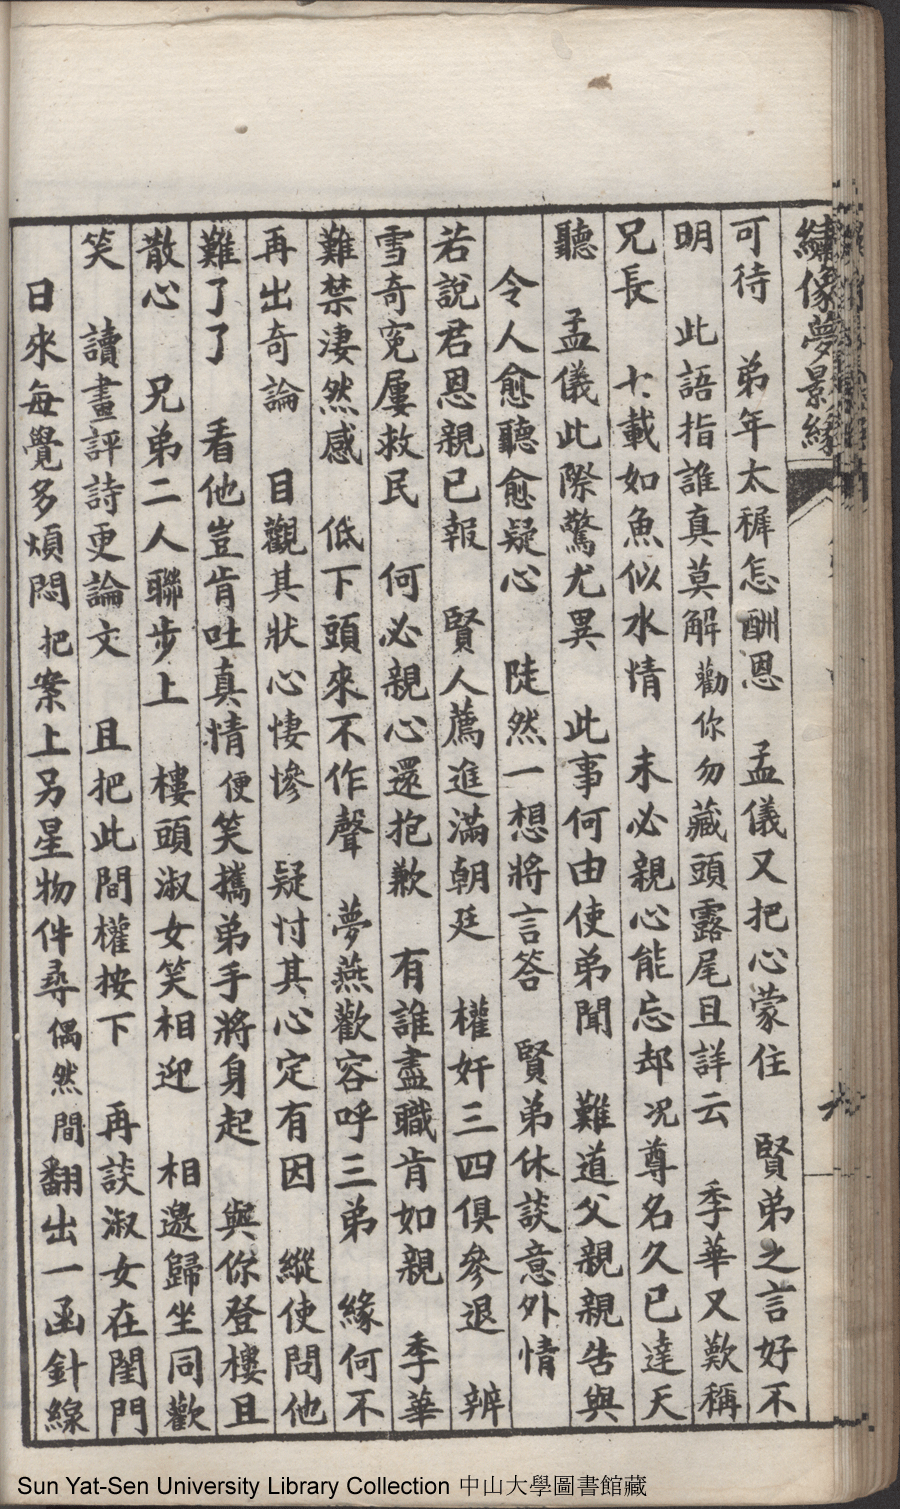 繡像夢景緣
可待　弟年太穉怎酬恩　孟儀又把心蒙住　賢弟之言好不
明　此語指誰真莫解　勸你勿藏頭露尾且詳云　季華又歎稱
兄長　七載如魚似水情　未必親心能忘却　况尊名久已達天
聽　孟儀此際驚尤異　此事何由使弟聞　難道父親親告與
令人愈聽愈疑心　陡然一想將言答　賢弟休談意外情
若說君恩親已報　賢人薦進滿朝廷　權奸三四俱參退　辨
雪奇寃屢救民　何必親心還抱歉　有誰盡職肯如親　季華
難禁淒然感　低下頭來不作聲　夢燕歡容呼三弟　緣何不
再出奇論　目觀其狀心悽慘　疑忖其心定有因　縱使問他
難了了　看他豈肯吐真情　便笑攜弟手將身起　與你登樓且
散心　兄弟二人聯步上　樓頭淑女笑相迎　相邀歸坐同歡
笑　讀畫評詩更論文　且把此間權按下　再談淑女在閨門
日來每覺多煩悶　把案上另星物件尋　偶然間翻出一函針線
Sun Yat-Sen University Library Collection 中山大學圖書館藏